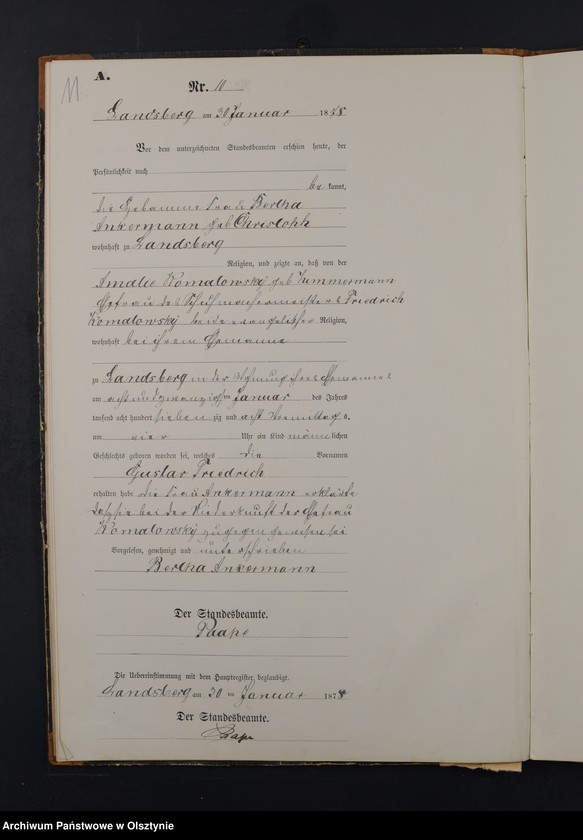 11
A.
Nr. 11
Landsberg am 30 Januar 1878
Vor dem unterzeichneten Standesbeamten erschien heute, der
Persönlichkeit nach
be kannt,
die Hebamme Frau Bertha
Ankermann geb Christoph
wohnhaft zu Landsberg
Religion, und zeigte an, daß von der
Amalie Komalowsky geb Zimmermann
Ehefrau des Schuhmachermeisters Friedrich
Komalowsky beide evangelischer Religion,
wohnhaft bei ihrem Ehemanne
zu Landsberg in der Wohnung ihres Ehemannes
am acht und zwanzigsten Januar des Jahres
tausend acht hundert sieben zig und acht Vormittags
um vier Uhr ein Kind männ lichen
Geschlechts geboren worden sei, welches die Vornamen
Gustav Friedrich
erhalten habe die Frau Ankermann erklärte
daß sie bei der Niederkunft der Ehefrau
Komalowsky zugegen gewesen sei
Vorgelesen, genehmigt und unterschrieben
Bertha Ankermann
Der Standesbeamte.
Paape
Die Uebereinstimmung mit dem Hauptregister, beglaubigt.
Landsberg am 30 ten Januar 1878
Der Standesbeamte.
Paape
Archiwum Państwowe w Olsztynie